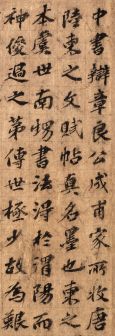 中書辯章良公成甫家所收唐
陸柬之文賦帖真名墨也柬之
本虞世南甥書法得於渭陽而
神俊過之第傳世極少故為艱